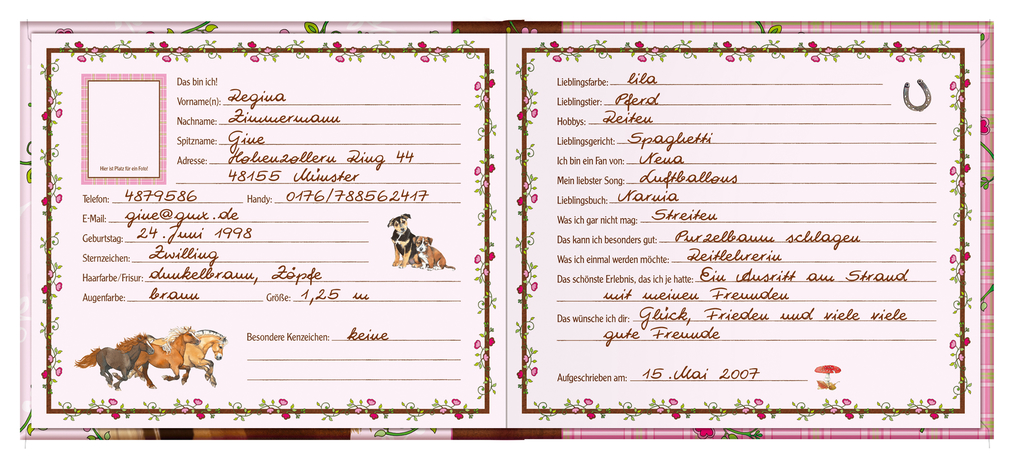 Hier ist Platz für ein Foto!
Das bin ich!
Vorname(n): Regina
Nachname: Zimmermann
Spitzname: Gine
Adresse: Hohenzollern Ring 44
48155 Münster
Telefon: 4879586 Handy: 0176/788562417
E-Mail: gine@gmx.de
Geburtstag: 24. Juni 1998
Sternzeichen: Zwilling
Haarfarbe/Frisur: dunkelbraun, Zöpfe
Augenfarbe: braun Größe: 1,25 m
Besondere Kenzeichen: keine
Lieblingsfarbe: lila
Lieblingstier: Pferd
Hobbys: Reiten
Lieblingsgericht: Spaghetti
Ich bin ein Fan von: Nena
Mein liebster Song: Luftballons
Lieblingsbuch: Narnia
Was ich gar nicht mag: Streiten
Das kann ich besonders gut: Purzelbaum schlagen
Was ich einmal werden möchte: Reitlehrerin
Das schönste Erlebnis, das ich je hatte: Ein Ausritt am Strand
mit meinen Freunden
Das wünsche ich dir: Glück, Frieden und viele viele
gute Freunde
Aufgeschrieben am: 15. Mai 2007